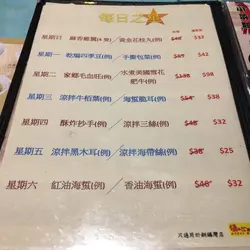 每日之星
星期日 麻香雞翼(4隻)/黃金花枝丸(例) $40 $32
星期一 乾煸四季豆(例)/手撕包菜(例) $42
星期二 家鄉毛血旺(例)/水煮美國雪花肥牛(例) $98
星期三 涼拌牛栢葉(例)/海蜇脆耳(例) $38
星期四 酥炸抄手(例)/涼拌三絲(例) $32
星期五 涼拌黑木耳(例)/涼拌海帶絲(例) $38
星期六 紅油海蜇(例)/香油海蜇(例) $32
只適用於銅鑼灣店